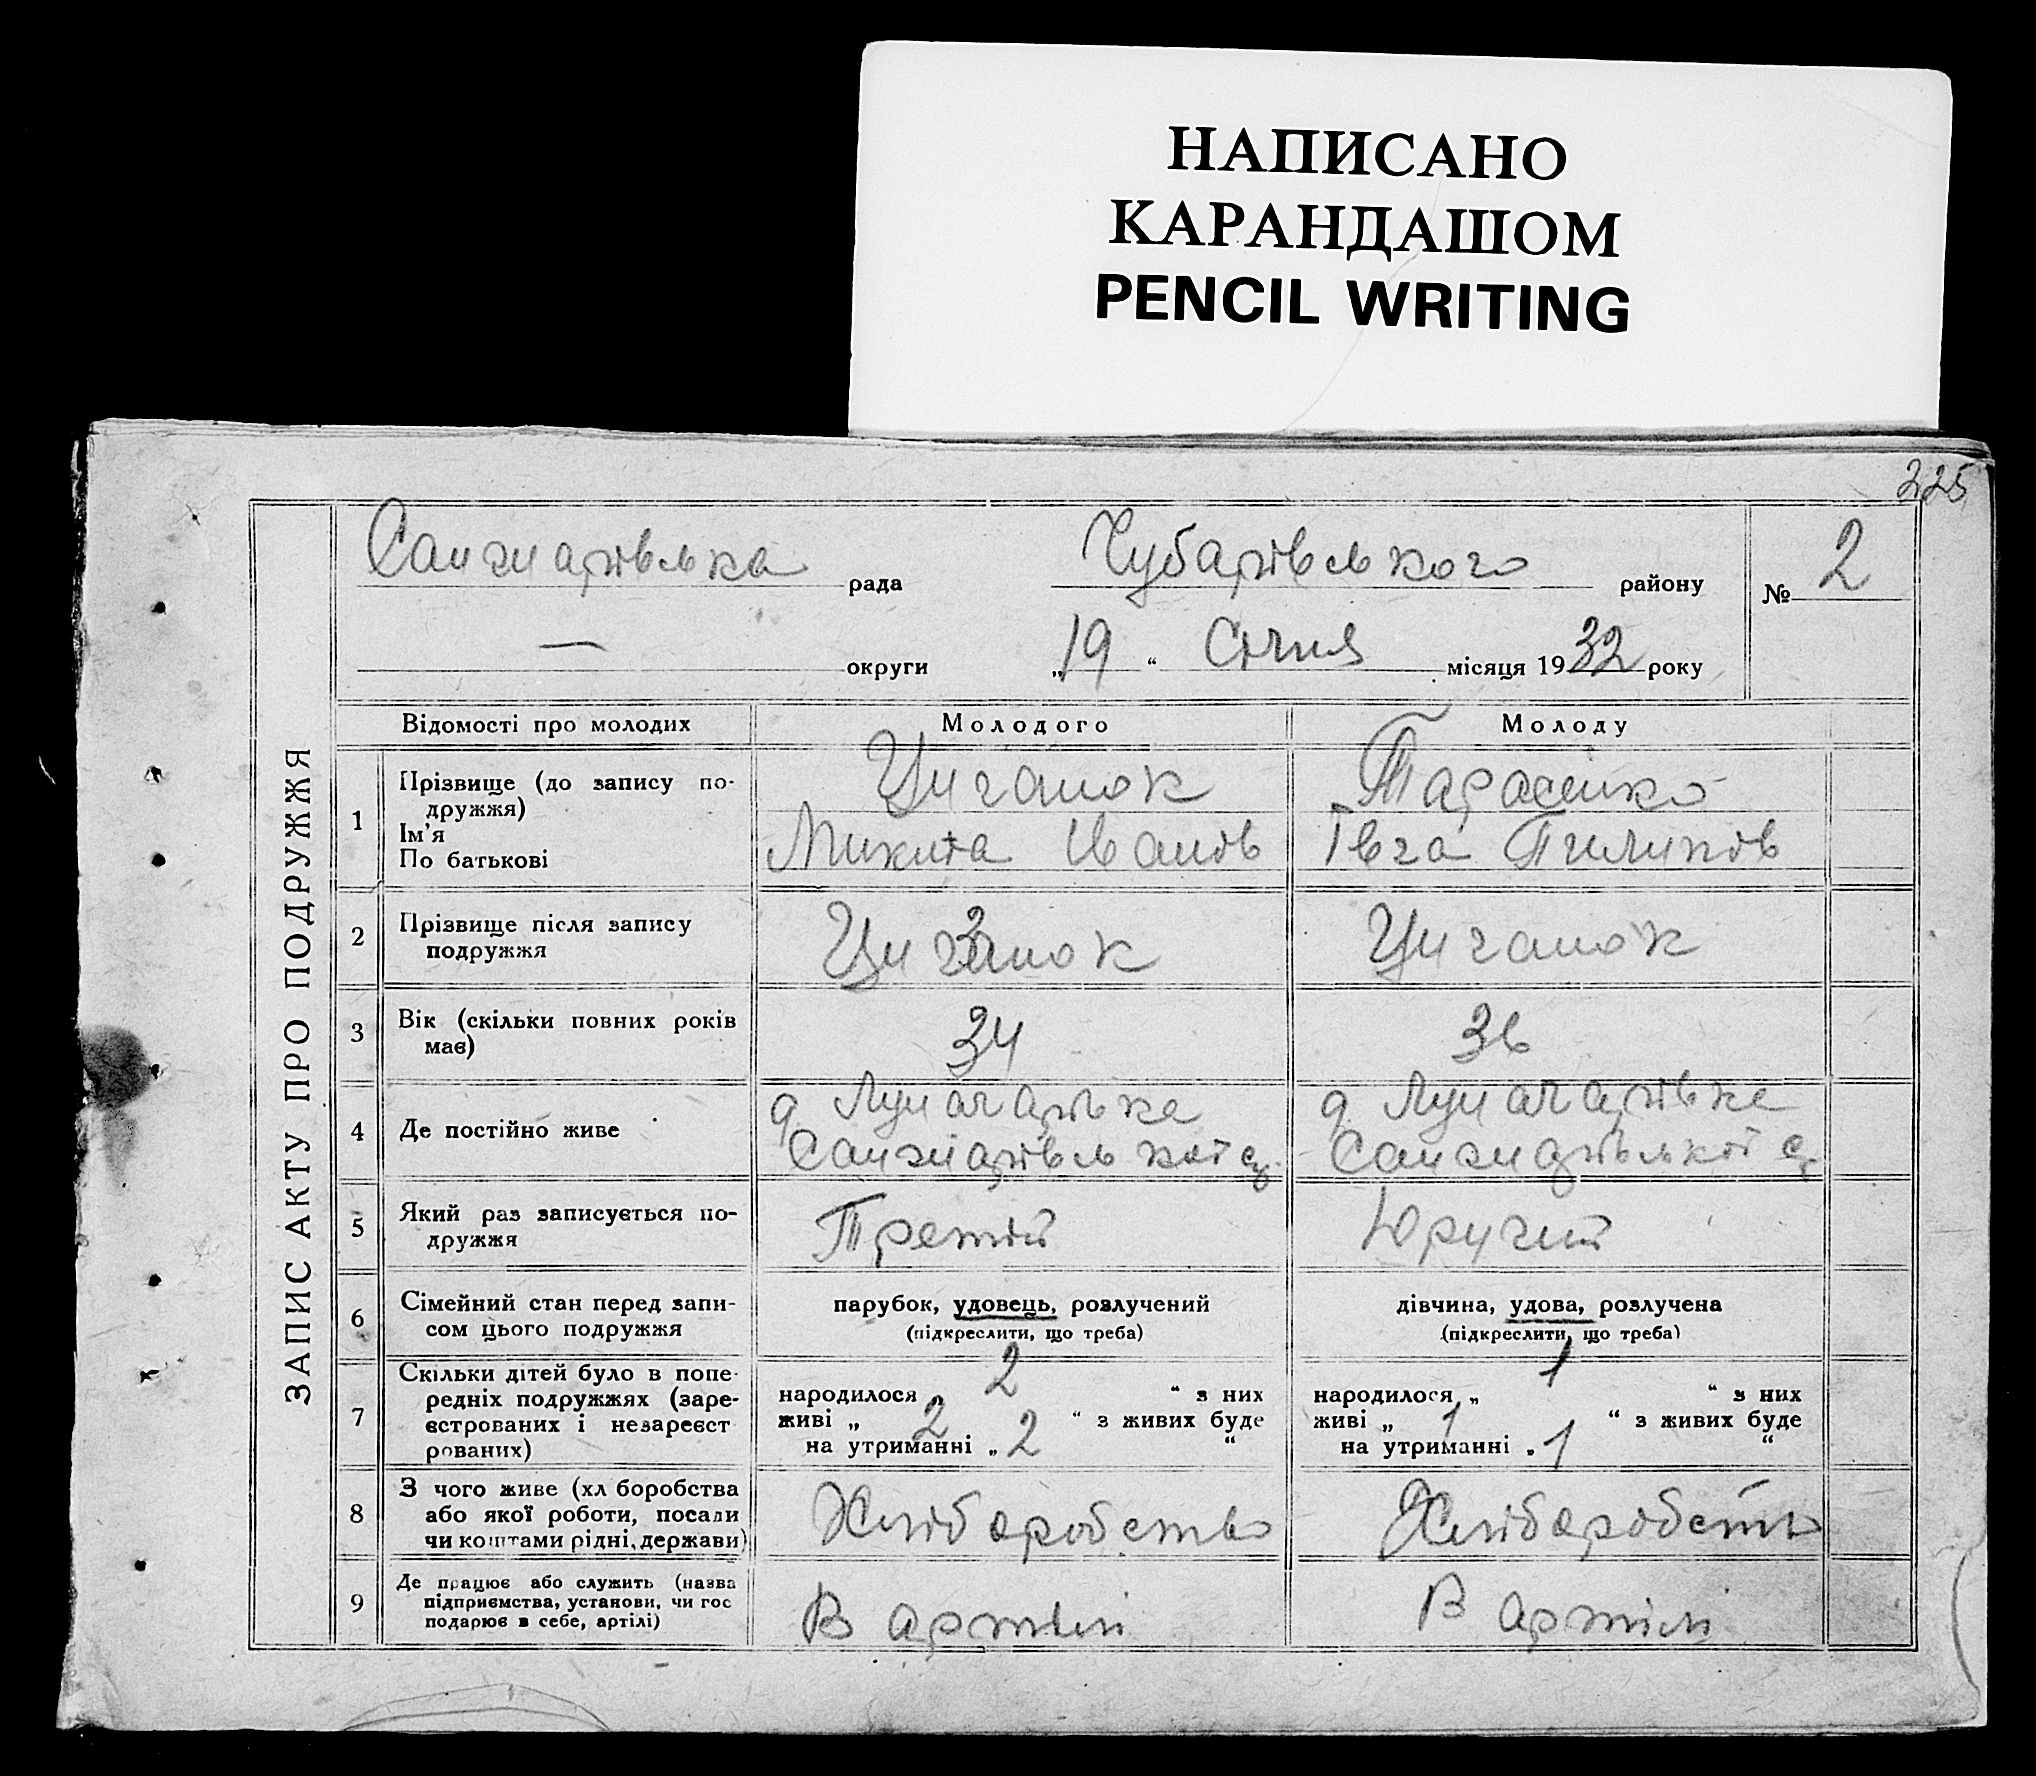 НАПИСАНО
КАРАНДАШОМ
PENCIL WRITING
225
ЗАПИС АКТУ ПРО ПОДРУЖЖЯ
Санжарівська рада Чубарівського району № 2
— округи „19“ Січня місяця 1932 року
Відомості про молодих Молодого Молоду
1 Прізвище (до запису по-
дружжя) Циганок Тарасенко
Ім'я
По батькові Микита Іванов Івга Пилипів
2 Прізвище після запису
подружжя Циганок Циганок
3 Вік (скільки повних років
має) 34 36
4 Де постійно живе
5 Який раз записується по-
дружжя Третій
6 Сімейний стан перед запи-
сом цього подружжя
парубок, удовець, розлучений
(підкреслити, що треба)
дівчина, удова, розлучена
(підкреслити, що треба)
7 Скільки дітей було в попе-
редніх подружжях (заре-
єстрованих і незареєст
рованих)
народилося „ 2 “ з них
живі „ 2 “ з живих буде
на утриманні „ 2 “
народилося „ 1 “ з них
живі „ 1 “ з живих буде
на утриманні „ 1 “
8 З чого живе (хл боробства
або якої роботи, посади
чи коштами рідні, держави)
Хліборобство
9 Де працює або служить (назва
підприємства, установи, чи гос
подарює в себе, артілі)
В артілі В артілі